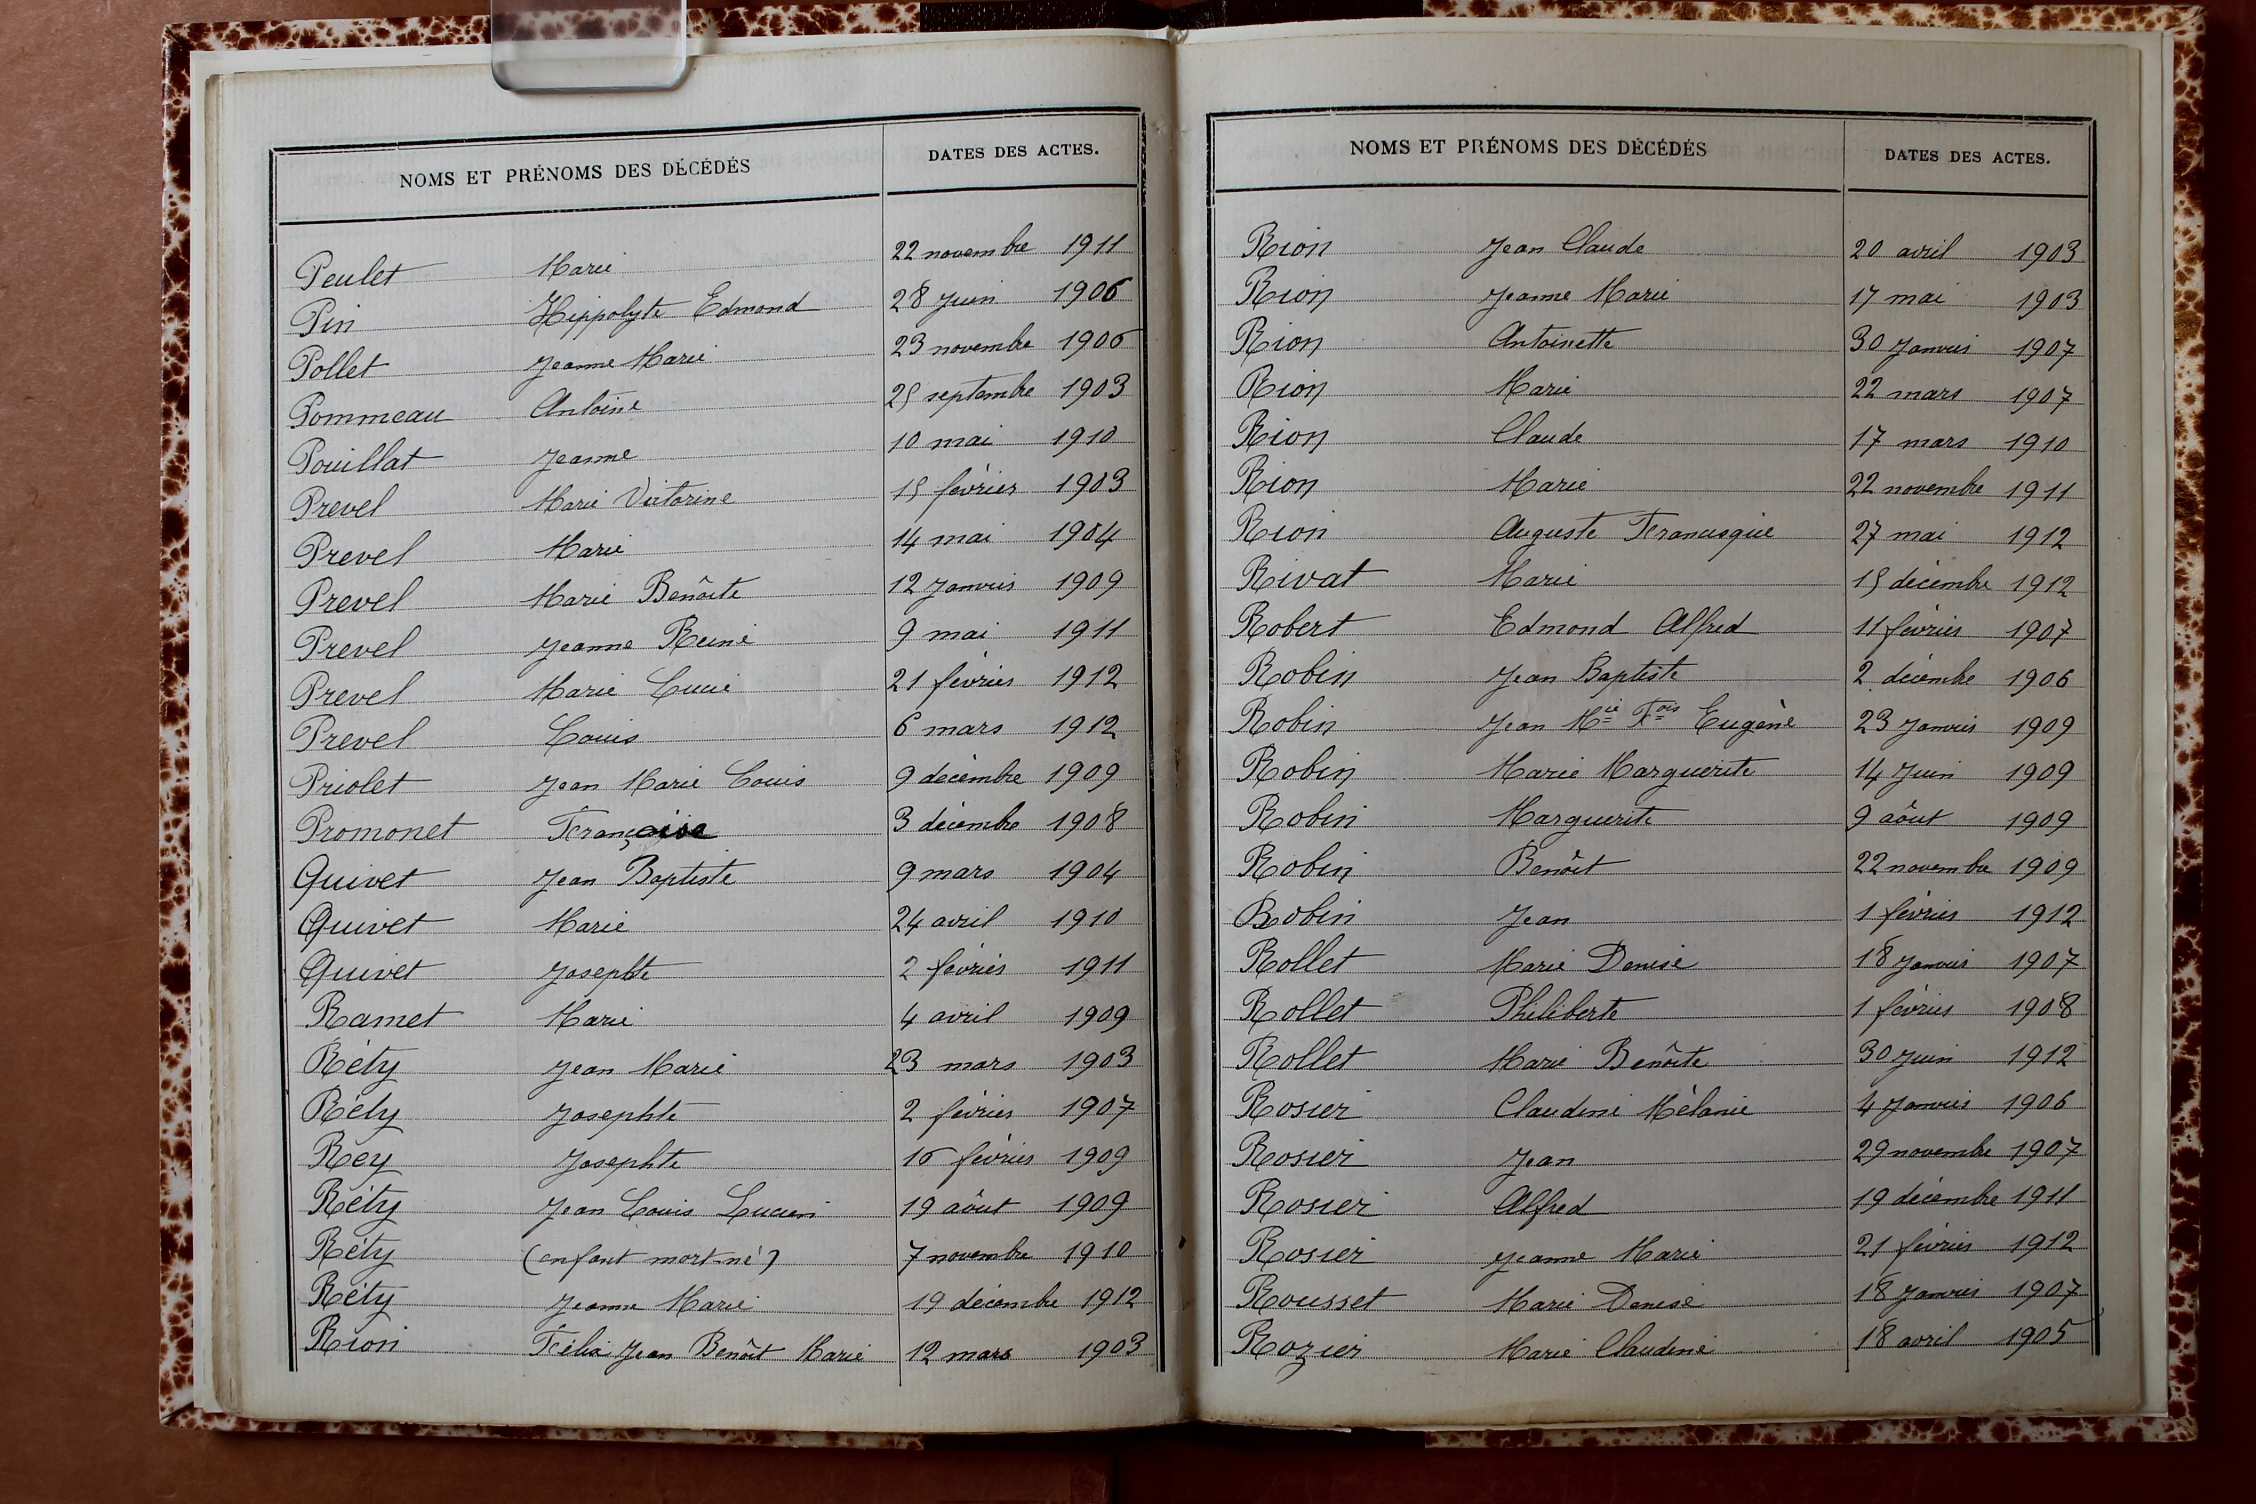 NOMS ET PRÉNOMS DES DÉCÉDÉS DATES DES ACTES.
Peulet Marie 22 novembre 1911
Pin Hippolyte Edmond 28 Juin 1906
Pollet Jeanne Marie 23 novembre 1906
Pommeau Antoine 25 septembre 1903
Pouillat Jeanne 10 mai 1910
Prevel Marie Victorine 15 février 1903
Prevel Marie 14 mai 1904
Prevel Marie Benôite 12 Janvier 1909
Prevel Jeanne Reine 9 mai 1911
Prevel Marie Lucie 21 février 1912
Prevel Louis 6 mars 1912
Priolet Jean Marie Louis 9 décembre 1909
Promonet Françoise 3 décembre 1908
Quivet Jean Baptiste 9 mars 1904
Quivet Marie 24 avril 1910
Quivet Josephte 2 février 1911
Ramet Marie 4 avril 1909
Réty Jean Marie 23 mars 1903
Réty Josephte 2 février 1907
Rey Josephte 16 février 1909
Réty Jean Louis Lucien 19 aôut 1909
Réty (enfant mort-né) 7 novembre 1910
Réty Jeanne Marie 19 décembre 1912
Rion Félix Jean Benôit Marie 12 mars 1903
NOMS ET PRÉNOMS DES DÉCÉDÉS DATES DES ACTES.
Rion Jean Claude 20 avril 1903
Rion Jeanne Marie 17 mai 1903
Rion Antoinette 30 Janvier 1907
Rion Marie 22 mars 1907
Rion Claude 17 mars 1910
Rion Marie 22 novembre 1911
Rion Auguste Francisque 27 mai 1912
Rivat Marie 15 décembre 1912
Robert Edmond Alfred 11 février 1907
Robin Jean Baptiste 2 décembre 1906
Robin Jean Mie Fois Eugène 23 Janvier 1909
Robin Marie Marguerite 14 Juin 1909
Robin Marguerite 9 aôut 1909
Robin Benôit 22 novembre 1909
Robin Jean 1 février 1912
Rollet Marie Denise 18 Janvier 1907
Rollet Philiberte 1 février 1908
Rollet Marie Benôite 30 Juin 1912
Rosier Claudine Mélanie 4 Janvier 1906
Rosier Jean 29 novembre 1907
Rosier Alfred 19 décembre 1911
Rosier Jeanne Marie 21 février 1912
Rousset Marie Denise 18 Janvier 1907
Rozier Marie Claudine 18 avril 1905